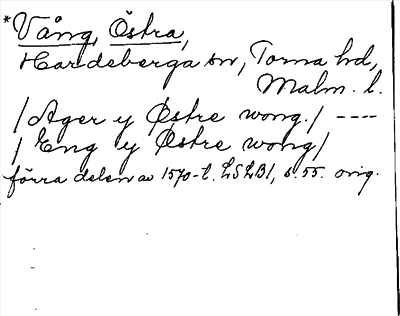 *Vång, Östra,
Hardeberga sn, Torna hd,
Malm. l.
/ Ager y Østre wong. / ----
/ Eng y Østre wong /
förra delen av 1570-t. LSLB1, s. 55. orig.